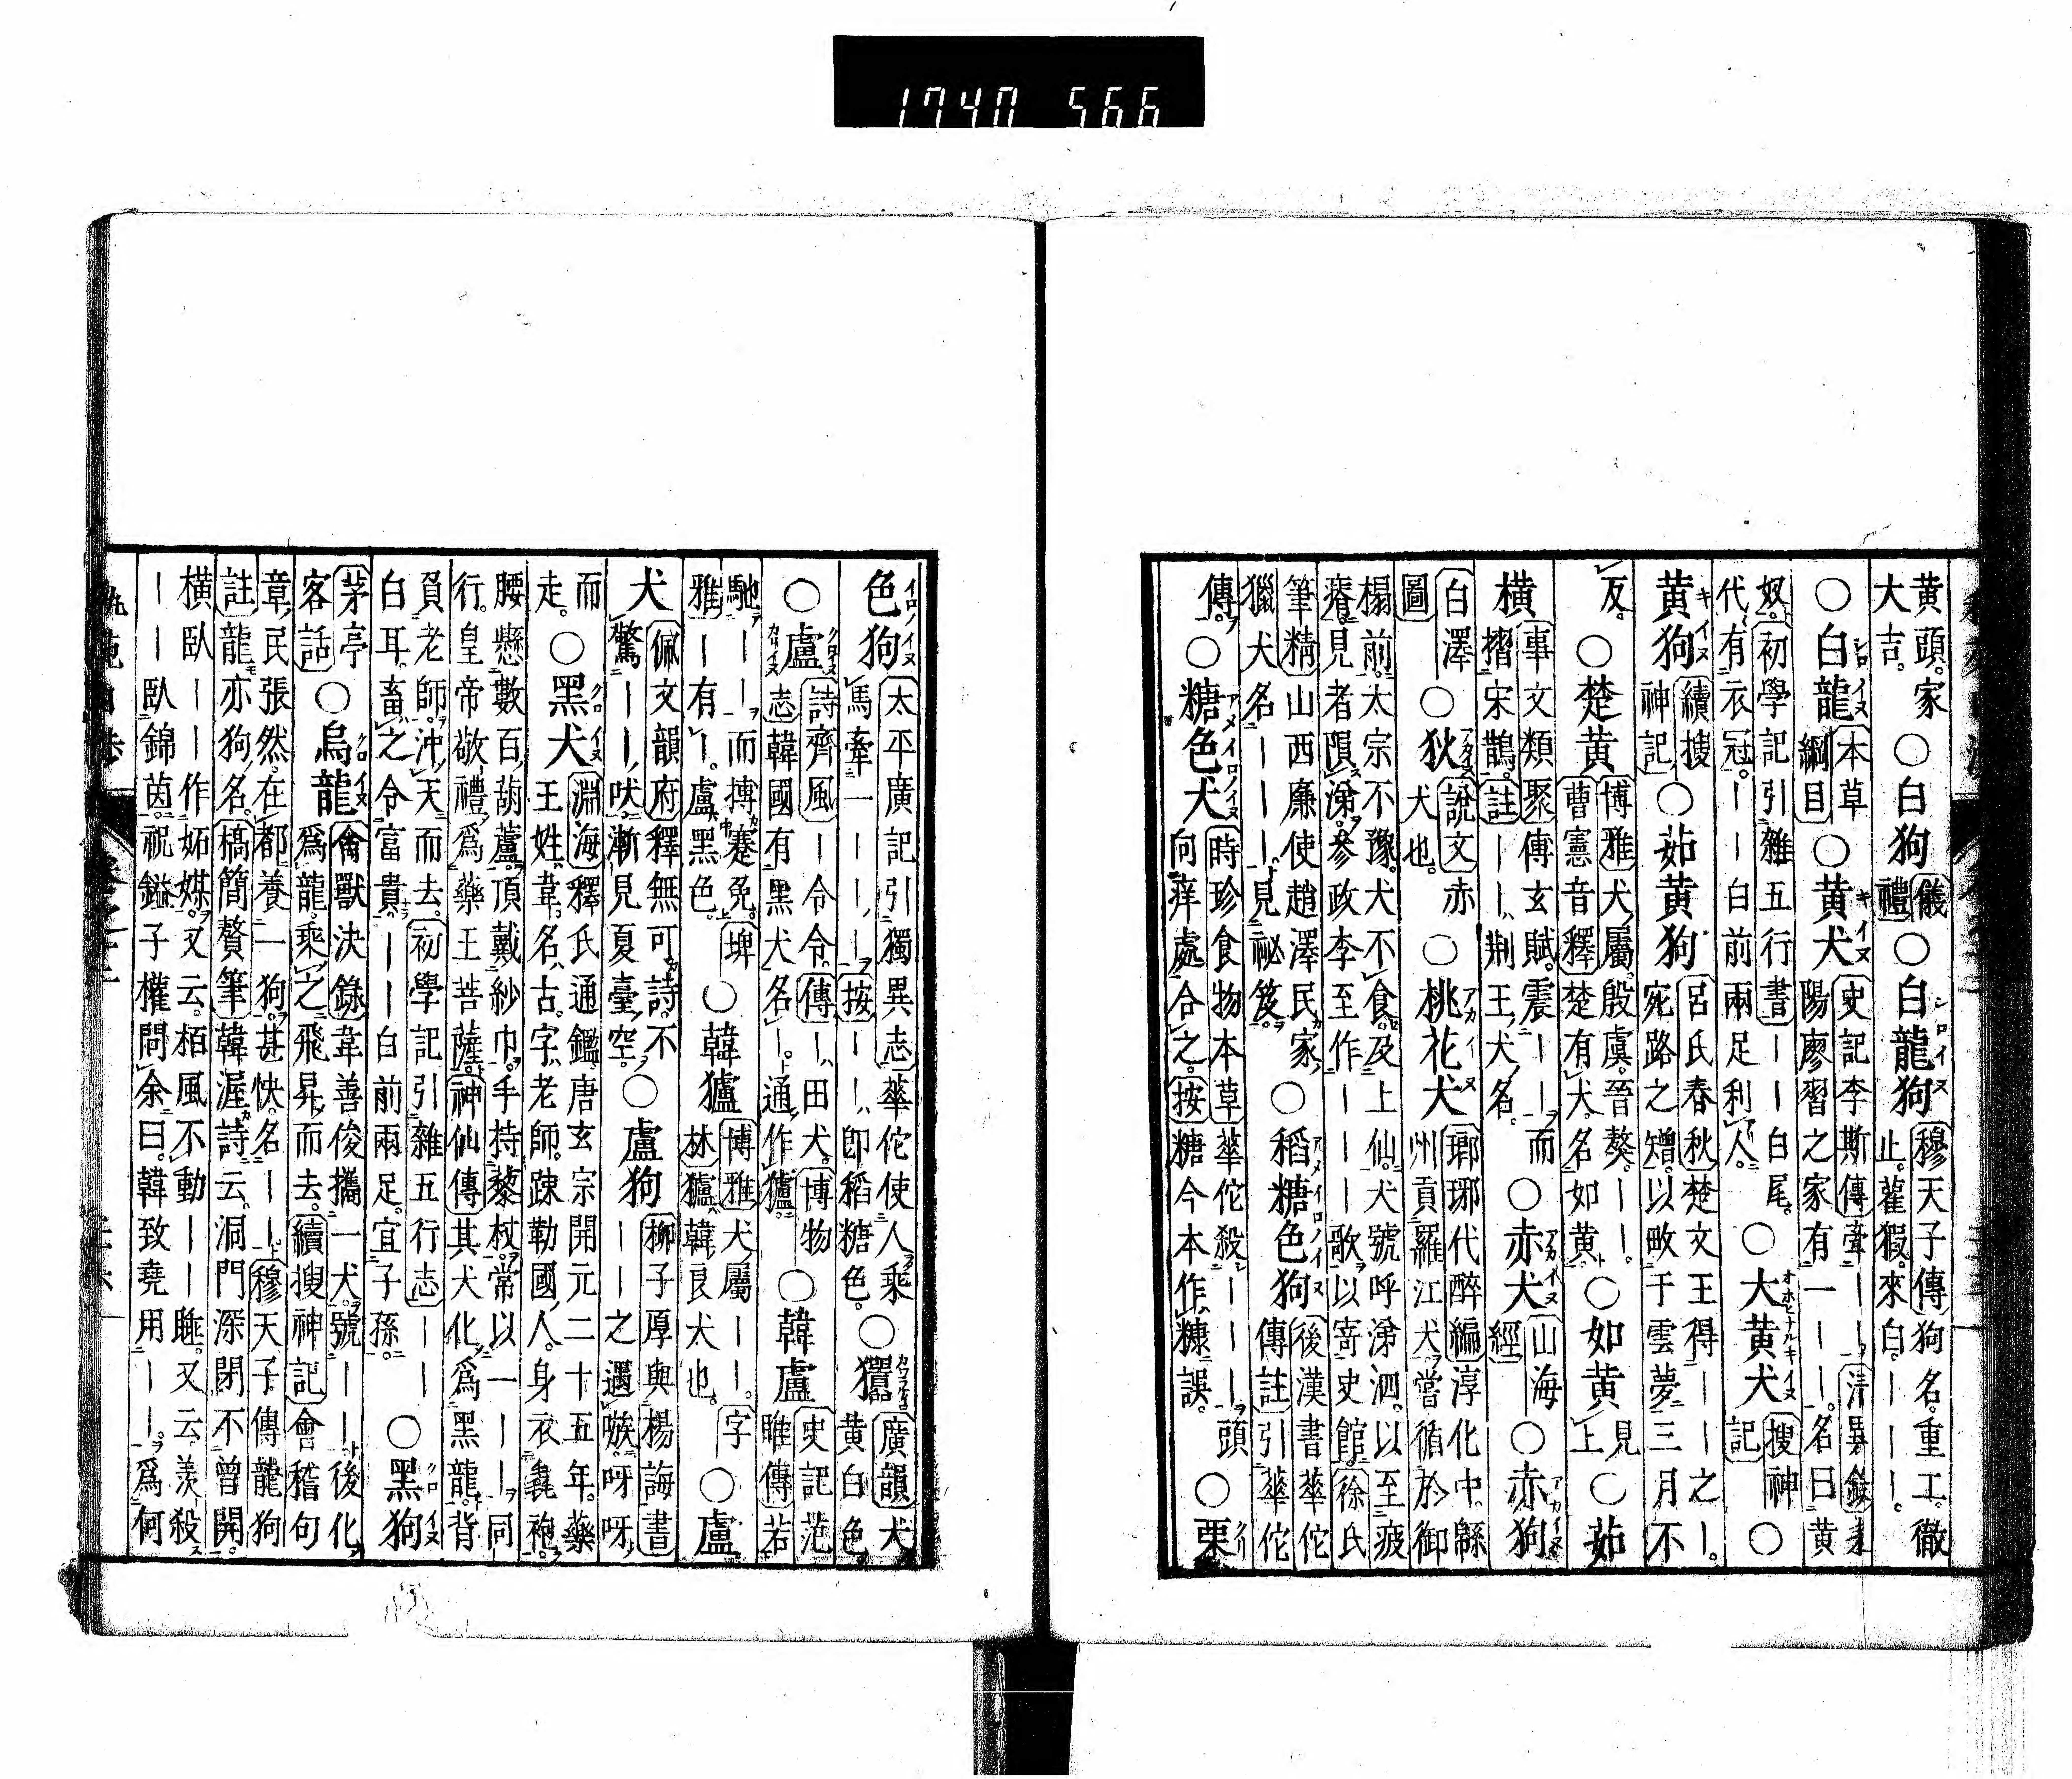 黃頭。家大吉。○白狗儀禮○白龍狗穆天子傳狗名。重工。徹止。雚猳。來白。｜｜｜。
○白龍本草綱目○黃犬史記李斯傳牽｜｜。清異錄 陽廖習之家有一｜｜。名曰黃
奴。初學記引雜五行書｜｜白尾。代有衣冠。｜｜白前兩足利人。○大黃犬搜神記○
黃狗續搜神記○茹黃狗呂氏春秋楚文王得｜｜之｜。宛路之矰。以畋于雲夢三月不
反。○楚黃博雅犬屬。殷虞。晉獒。｜｜。曹憲音釋楚有犬。名如黃。○如黃見上○茹
橫事文類聚傅玄賦。震｜｜而摺宋鵲。註｜｜荆王犬名。○赤犬山海經○赤狗
白澤圖○狄說文赤犬也。○桃花犬瑯琊代醉編淳化中。緜州貢羅江犬嘗循於御
榻前。太宗不豫。犬不食。及上仙。犬號呼涕泗。以至疲瘠。見者隕涕。參政李至作｜｜｜歌以寄史館。徐氏
筆精山西廉使趙澤民家。獵犬名｜｜｜。見祕笈。○稻糖色狗後漢書華佗傳註引華佗
傳。○糖色犬時珍食物本草華佗殺｜｜｜頭向痒處合之。按糖今本作糠誤。○栗
色狗太平廣記引獨異志華佗使人乘馬牽一｜｜｜。按｜｜卽稻糖色。○ 廣韻犬黃白色
○盧詩齊風｜令令。傳｜田犬。博物志韓國有黑犬名｜。通作獹。○韓盧史記范雎傳若
馳｜｜而搏蹇兔。埤雅｜有｜。盧黑色。○韓獹博雅犬屬｜｜。字林獹韓良犬也。○盧
犬佩文韻府釋無可詩。不驚｜｜吠。漸見夏臺空。○盧狗柳子厚與楊誨書｜｜之遇嗾。呀呀
而走。○黑犬淵海釋氏通鑑。唐玄宗開元二十五年。藥王姓韋。名古。字老師。踈勒國人。身衣毳袍。
腰懸數百葫蘆。頂戴紗巾。手持藜杖。常以一｜｜同行。皇帝敬禮爲藥王菩薩。神仙傳其犬化爲黑龍。背
負老師。沖天而去。初學記引雜五行志｜｜白耳。畜之令富貴。｜｜白前兩足。宜子孫。○黑狗
茅亭客話○烏龍禽獸決錄韋善俊攜一犬。號｜｜後化爲龍。乘之飛昇而去。續搜神記會稽句
章民張然。在都養一狗。甚快。名｜｜。穆天子傳龍狗註龍亦狗名。槁簡贅筆韓渥詩云。洞門深閉不曾開。
橫臥｜｜作妬媒。又云。栢風不動｜｜眠。又云羨殺｜｜臥錦茵。祝鎰子權問余曰。韓致堯用｜｜。爲何
1740 566